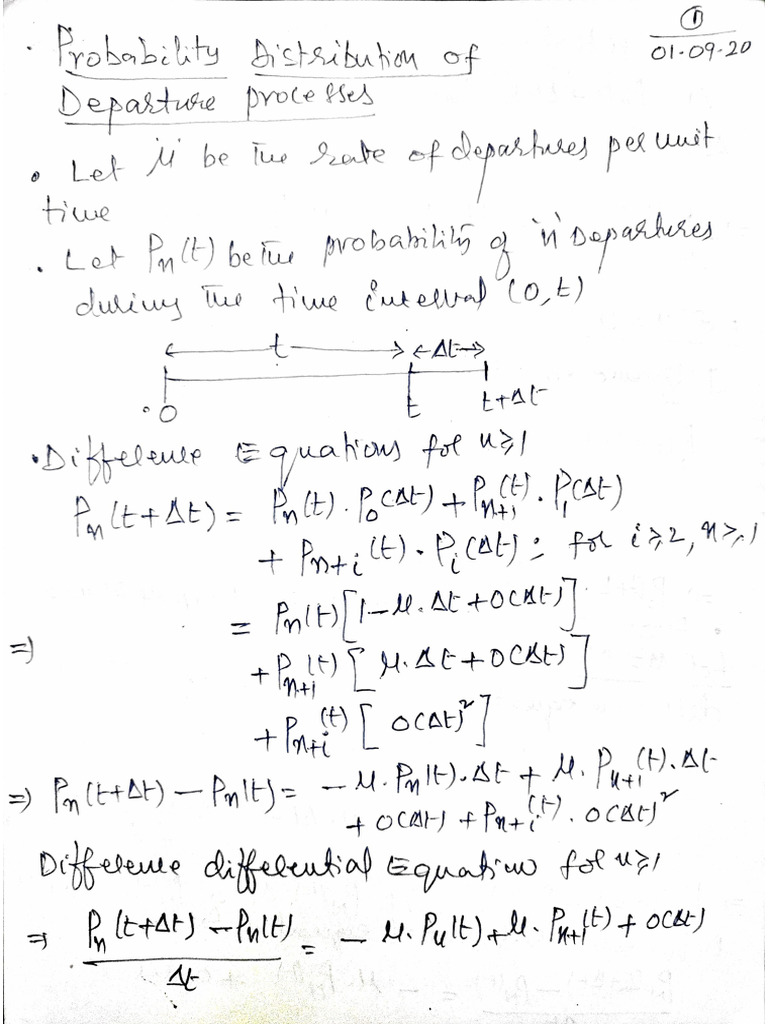 ①
01-09-20
· Probability Distribution of
Departure processes
• Let μ be the rate of departures per unit
time
• Let Pn(t) be the probability of 'n' Departures
during the time interval (0,t)
t Δt
0 t t+Δt
• Difference Equations for n≥1
Pn(t+Δt) = Pn(t).P0(Δt) + Pn+1(t).P1(Δt)
+ Pn+i(t).Pi(Δt); for i≥2, n≥1
⇒ = Pn(t)[1-μ.Δt+0(Δt)]
+Pn+1(t)[μ.Δt+0(Δt)]
+Pn+i(t)[0(Δt)²]
⇒ Pn(t+Δt) - Pn(t) = -μ.Pn(t).Δt + μ.Pn+1(t).Δt
+0(Δt) + Pn+i(t).0(Δt)²
Difference differential Equation for n≥1
⇒ Pn(t+Δt) - Pn(t) = -μ.Pn(t)+μ.Pn+1(t)+0(Δt)
Δt